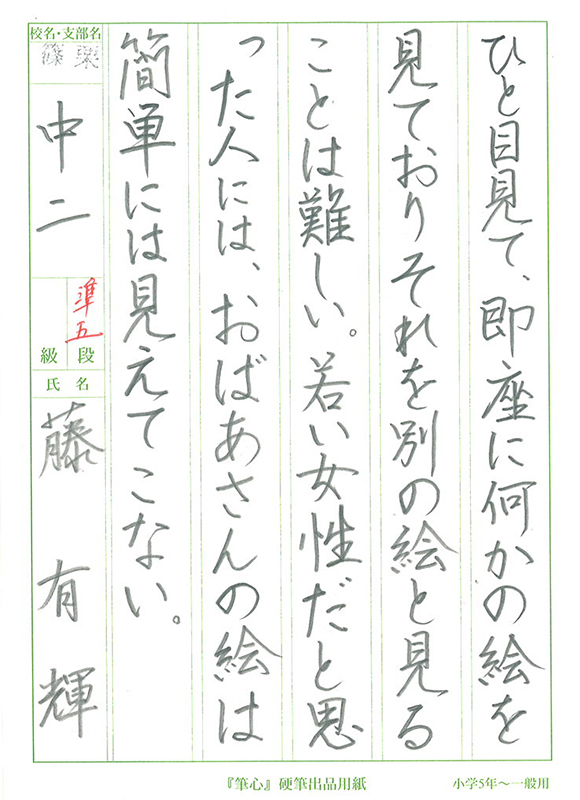 ひと目見て、即座に何かの絵を
見ておりそれを別の絵と見る
ことは難しい。若い女性だと思
った人には、おばあさんの絵は
簡単には見えてこない。
校名・支部名
篠栗
中二
準五
段
級
氏名
藤 有輝
『筆心』硬筆出品用紙
小学5年〜一般用